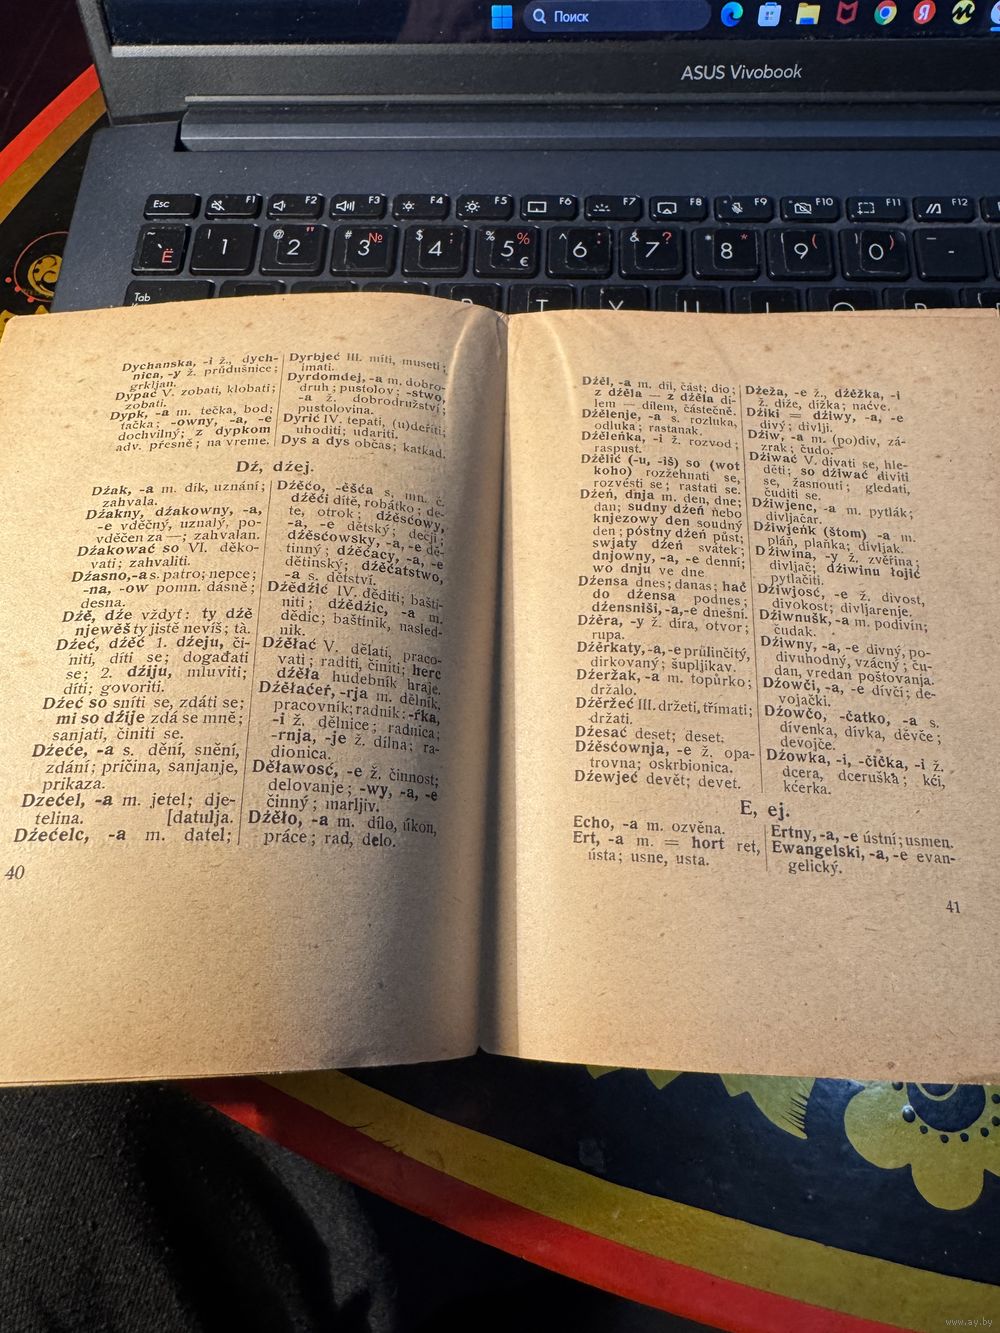 Поиск
ASUS Vivobook
Esc F1 F2 F3 F4 F5 F6 F7 F8 F9 F10 F11 F12
~ ` Ё ! 1 @ " 2 # № 3 $ ; 4 % 5 % € ^ : 6 & ? 7 * 8 * ( 9 ( ) 0 ) _ -
Tab
Dychanska, -i ž., dych-
nica, -y ž. průdušnice;
grkljan.
Dypać V. zobati, klobati;
zobati.
Dypk, -a m. tečka, bod;
tačka; -owny, -a, -e
dochvilný; z dypkom
adv. přesně; na vreme.
Dyrbjeć III. míti, museti;
imati.
Dyrdomdej, -a m. dobro-
druh; pustolov; -stwo,
-a ž. dobrodružství;
pustolovina.
Dyrić IV. tepati, (u)deřiti;
uhoditi; udariti.
Dys a dys občas; katkad.
Dź, dźej.
Dźak, -a m. dík, uznání;
zahvala.
Dźakny, dźakowny, -a,
-e vděčný, uznalý, po-
vděčen za —; zahvalan.
Dźakować so VI. děko-
vati; zahvaliti.
Dźasno, -a s. patro; nepce;
-na, -ow pomn. dásně;
desna.
Dźě, dźe vždyť: ty dźě
njewěš ty jistě nevíš; tà.
Dźeć, dźěć 1. dźeju, či-
niti, díti se; događati
se; 2. dźiju, mluviti;
díti; govoriti.
Dźeć so sníti se, zdáti se;
mi so dźije zdá se mně;
sanjati, činiti se.
Dźeće, -a s. dění, snění,
zdání; pričina, sanjanje,
prikaza.
Dzećel, -a m. jetel; dje-
telina. [datulja.
Dźećelc, -a m. datel;
40
Dźěćo, -ěšća s. mn. č.
dźěći dítě, robátko; de-
te, otrok; dźěsćowy,
-a, -e dětský; dečji;
dźěsćowsky, -a, -e dě-
tinný; dźěćacy, -a, -e
dětinský; dźěćatstwo,
-a s. dětství.
Dźědźić IV. děditi; bašti-
niti; dźědźic, -a m.
dědic; baštiník, nasled-
nik.
Dźěłać V. dělati, praco-
vati; raditi, činiti; herc
dźěła hudebník hraje.
Dźěłaćeŕ, -rja m. dělník,
pracovník; radnik; -ŕka,
-i ž. dělnice; radnica;
-rnja, -je ž. dílna; ra-
dionica.
Děławosć, -e ž. činnost;
delovanje; -wy, -a, -e
činný; marljiv.
Dźěło, -a m. dílo, úkon,
práce; rad, delo.
Dźěl, -a m. díl, část; dio;
z dźěla — z dźěla dí-
lem — dílem, částečně.
Dźělenje, -a s. rozluka,
odluka; rastanak.
Dźěleńka, -i ž. rozvod;
raspust.
Dźělić (-u, -iš) so (wot
koho) rozžehnati se,
rozvésti se; rastati se.
Dźeń, dnja m. den, dne;
dan; sudny dźeń nebo
knjezowy den soudný
den; póstny dźeń půst;
swjaty dźeń svátek;
dnjowny, -a, -e denní;
wo dnju ve dne
Dźensa dnes; danas; hač
do dźensa podnes;
dźensniši, -a, -e dnešní.
Dźěra, -y ž. díra, otvor;
rupa.
Dźěrkaty, -a, -e průlinčitý,
dirkovaný; šupljikav.
Dźeržak, -a m. topůrko;
držalo.
Dźěržeć III. držeti, třímati;
držati.
Dźesać deset; deset.
Dźěsćownja, -e ž. opa-
trovna; oskrbionica.
Dźewjeć devět; devet.
Dźeža, -e ž., dźěžka, -i
ž. díže, dížka; naćve.
Dźiki = dźiwy, -a, -e
divý; divlji.
Dźiw, -a m. (po)div, zá-
zrak; čudo.
Dźiwać V. dívati se, hle-
děti; so dźiwać diviti
se, žasnouti; gledati,
čuditi se.
Dźiwjenc, -a m. pytlák;
divljačar.
Dźiwjeńk (štom) -a m.
pláň, plaňka; divljak.
Dźiwina, -y ž. zvěřina;
divljač; dźiwinu łojić
pytlačiti.
Dźiwjosć, -e ž. divost,
divokost; divljarenje.
Dźiwnušk, -a m. podivín;
čudak.
Dźiwny, -a, -e divný, po-
divuhodný, vzácný; ču-
dan, vredan poštovanja.
Dźowči, -a, -e dívčí; de-
vojački.
Dźowčo, -čatko, -a s.
dívenka, dívka, děvče;
devojče.
Dźowka, -i, -čička, -i ž.
dcera, dceruška; kći,
kćerka.
E, ej.
Echo, -a m. ozvěna.
Ert, -a m. = hort ret,
ústa; usne, usta.
Ertny, -a, -e ústní; usmen.
Ewangelski, -a, -e evan-
gelický.
41
www.ay.by